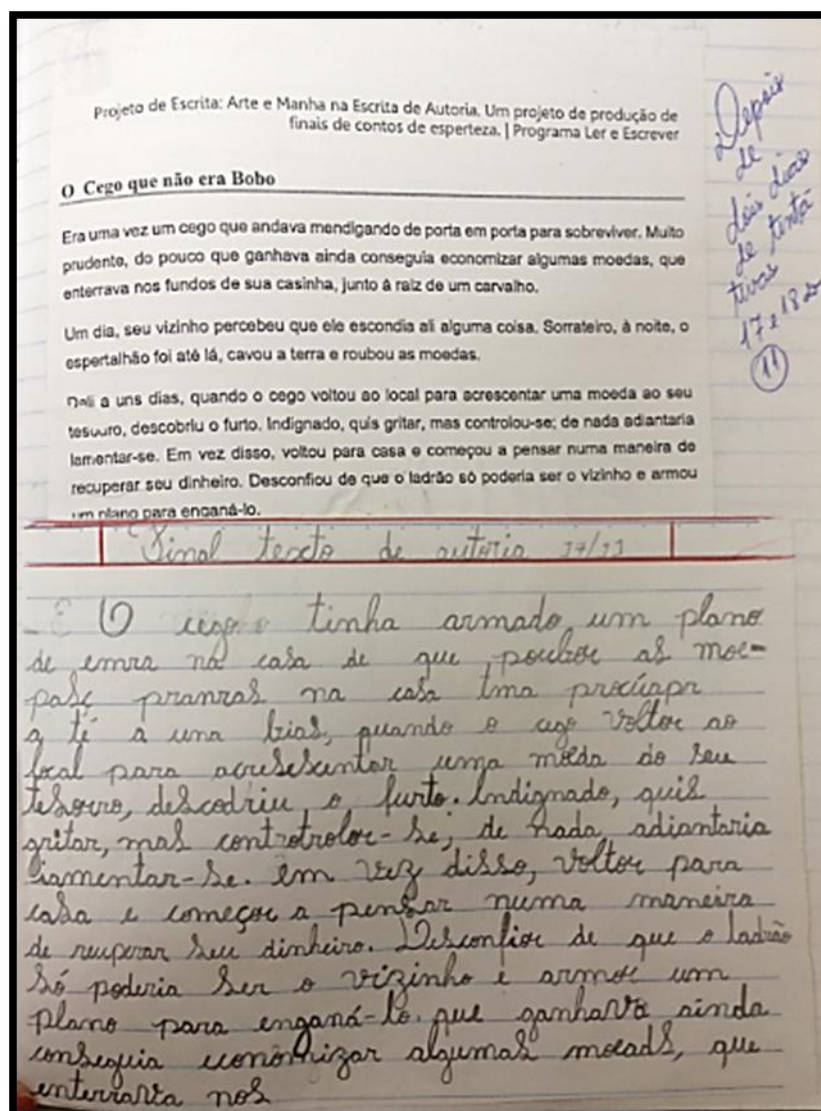 Projeto de Escrita: Arte e Manha na Escrita de Autoria. Um projeto de produção de
finais de contos de esperteza. | Programa Ler e Escrever
O Cego que não era Bobo
Era uma vez um cego que andava mendigando de porta em porta para sobreviver. Muito
prudente, do pouco que ganhava ainda conseguia economizar algumas moedas, que
enterrava nos fundos de sua casinha, junto à raiz de um carvalho.
Um dia, seu vizinho percebeu que ele escondia ali alguma coisa. Sorrateiro, à noite, o
espertalhão foi até lá, cavou a terra e roubou as moedas.
Dali a uns dias, quando o cego voltou ao local para acrescentar uma moeda ao seu
tesouro, descobriu o furto. Indignado, quis gritar, mas controlou-se; de nada adiantaria
lamentar-se. Em vez disso, voltou para casa e começou a pensar numa maneira de
recuperar seu dinheiro. Desconfiou de que o ladrão só poderia ser o vizinho e armou
um plano para enganá-lo.
Depois
de
dois dias
de tenta
tivas
17 e 18
11
Final texto de autoria 17/11
O cego tinha armado um plano
de emra na casa de que as moe-
na casa
a té a una bias, quando o cego voltor ao
local para acresescentar uma moeda do seu
tesorro, descodriu o furto. Indignado, quis
gritar, mas controtrolor-se; de nada adiantaria
liamentar-se. em vez disso, voltor para
casa e começor a pensar numa maneira
de recuperar seu dinheiro. Desconfior de que o ladrão
só poderia ser o vizinho e armor um
plano para enganá-lo. que ganhava ainda
conseguia economizar algumas moeads, que
enterrava nos